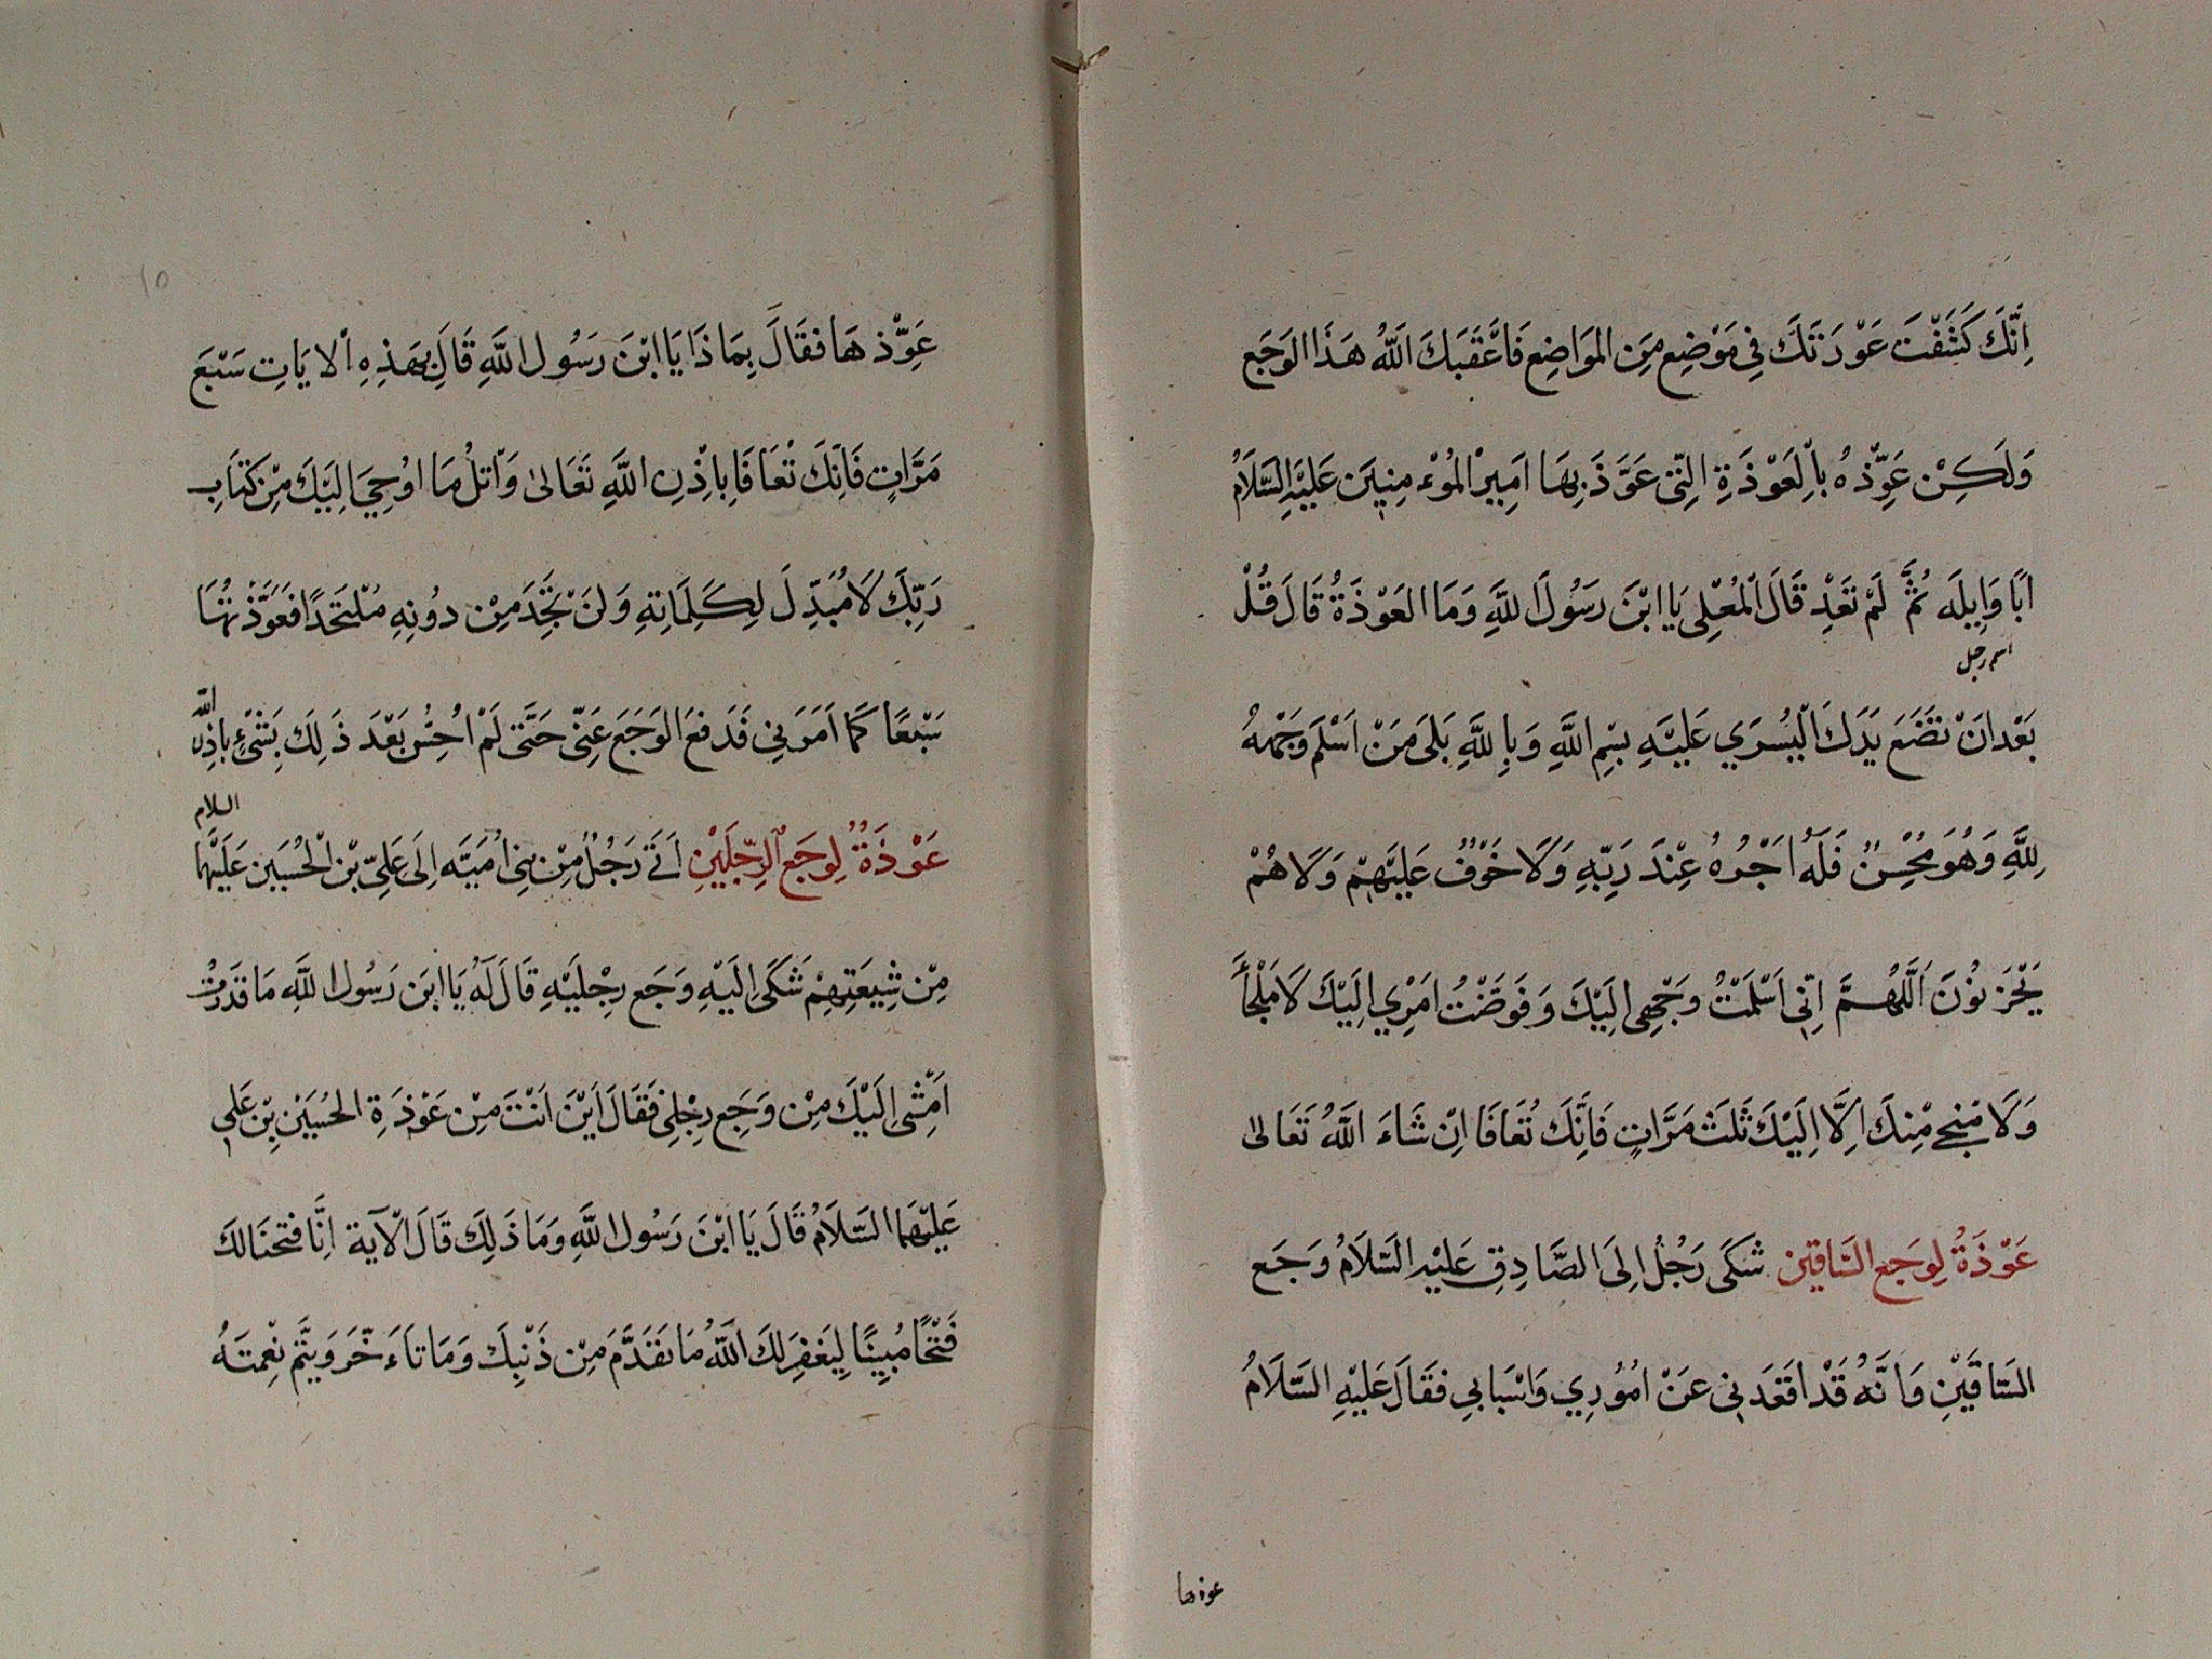 اِنَّكَ كَشَفْتَ عَوْرَتَكَ فِي مَوْضِعٍ مِنَ المَوَاضِعِ فَاَعْقَبَكَ اللّٰهُ هَذَا الوَجَعَ
وَلَكِنْ عَوِّذْهُ بِالْعَوْذَةِ الَّتِي عَوَّذَ بِهَا اَمِيرُ الْمُؤْمِنِينَ عَلَيْهِ السَّلَامُ
اَبَا وَايِلَه ثُمَّ لَمْ تَعَدْ قَالَ الْمُعْلِى يَا ابْنَ رَسُولَ اللَّهِ وَمَا العَوْذَةُ قَالَ قُلْ
اسم رجل
بَعْدَ اَنْ تَضَعَ يَدَكَ الْيُسْرَي عَلَيْهِ بِسْمِ اللَّهِ وَبِاللَّهِ بَلَى مَنْ اَسْلَمَ وَجْهَهُ
لِلَّهِ وَهُوَ مُحْسِنٌ فَلَهُ اَجْرُهُ عِنْدَ رَبِّهِ وَلَا خَوْفٌ عَلَيْهِمْ وَلَا هُمْ
يَحْزَنُوْنَ اَللَّهُمَّ اِنِّي اَسْلَمْتُ وَجْهِي اِلَيْكَ وَفَوَضْتُ اَمْرِي اِلَيْكَ لَا مَلْجَأَ
وَلَا مَنْجِي مِنْكَ اِلَّا اِلَيْكَ ثَلَثَ مَرَّاتٍ فَاِنَّكَ تُعَافَا اِنْ شَاءَ اللَّهُ تَعَالىٰ
عَوْذَةُ لِوَجَعِ السَّاقِين شَكَى رَجُلُ اِلَى الصَّادِقِ عَلَيْهِ السَّلَامُ وَجَع
السَّاقَيْنِ وَاَنَّهُ قَدْ اَقْعَدَنِي عَنْ اُمُوْرِي وَاَسْبَابِي فَقَالَ عَلَيْهِ السَّلَامُ
عوذها
١٥
عَوِّذْهَا فَقَالَ بِمَاذَا يَا ابْنَ رَسُول اللَّهِ قَالَ بِهَذِهِ الْايَاتِ سَبْعَ
مَرَّاتٍ فَاِنَّكَ تُعَافَا بِاِذْنِ اللَّهِ تَعَالىٰ وَاتْلُ مَا اُوْحِيَ اِلَيْكَ مِنْ كِتَابِ
رَبِّكَ لَا مُبَدِّلَ لِكَلِمَاتِهِ وَلَنْ تَجِدَ مِنْ دُونِهِ مُلْتَحَدًا فَعَوَّذْتُهَا
سَبْعًا كَمَا اَمَرَنِي فَدَفَعَ الوَجَعَ عَنِّي حَتَّى لَمْ اُحِسُ بَعْدَ ذَلِكَ بِشَيْءٍ بِاذِنِ اللّٰه
عَوْذَةُ لِوجَعِ الرِّجْلَيْنِ اَتَى رَجُلُ مِنْ بَنِي اُمَيَّه اِلَى عَلِيّ بْن الْحُسَيَن عَلَيْهِمَا السلام
مِنْ شِيعَتِهِمْ شَكَى اِلَيْهِ وَجَع رِجْلَيْهِ قَالَ لَهُ يَا ابَن رَسُول اللَّهِ مَا قَدَرْتُ
اَمْشِى اِلَيْكَ مِنْ وَجَعِ رِجْلِي فَقَالَ اَيْنَ اَنْتَ مِنْ عَوْذَةِ الحُسَيْنِ بْنِ عَلِي
عَلَيْهَما السَّلَامُ قَالَ يَا ابْنَ رَسُول اللَّهِ وَمَا ذَلِكَ قَالَ الْآيَة اِنَّا فَتَحْنَا لَكَ
فَتْحًا مُبِيِنًا لِيَغْفِرَ لَكَ اللَّهُ مَا تَقَدَّمَ مِنْ ذَنْبِكَ وَمَا تَاَخَّرَ وَيُتِّمَ نِعْمَتَهُ